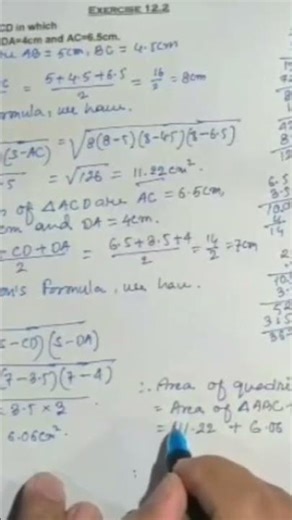 EXERCISE 12.2
CD in which
DA=4cm and AC=6.5cm.
are AB = 5cm, BC = 4.5cm
= 5+4.5+6.5/2 = 16/2 = 8cm
ormula, we have.
(S-AC) = √8(8-5)(8-4.5)(8-6.5)
.5 = √126 = 11.22cm².
s of △ACD are AC = 6.5cm,
cm and DA = 4cm.
+CD+DA/2 = 6.5+3.5+4/2 = 14/2 = 7cm
on's Formula, we have.
S-CD)(S-DA)
7-3.5)(7-4)
= 3.5 × 3
6.06cm².
∴ Area of quadri
= Area of △ABC +
= 11.22 + 6.06